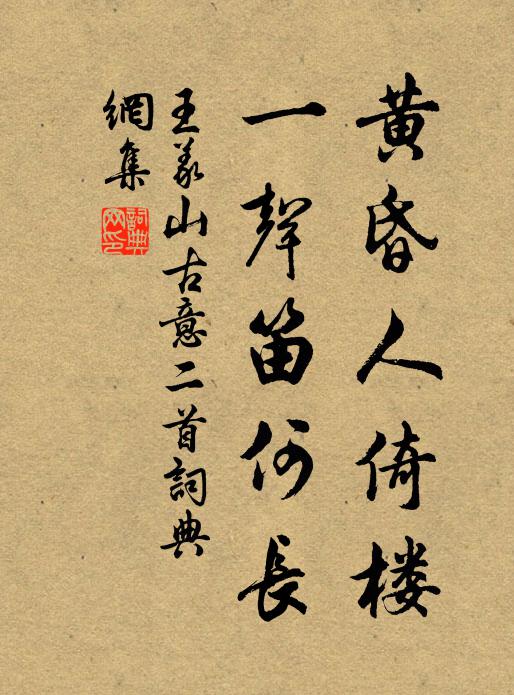 黃昏人倚楼
一聲笛何長
王義山古意二首詞典
網集
詞典
网印